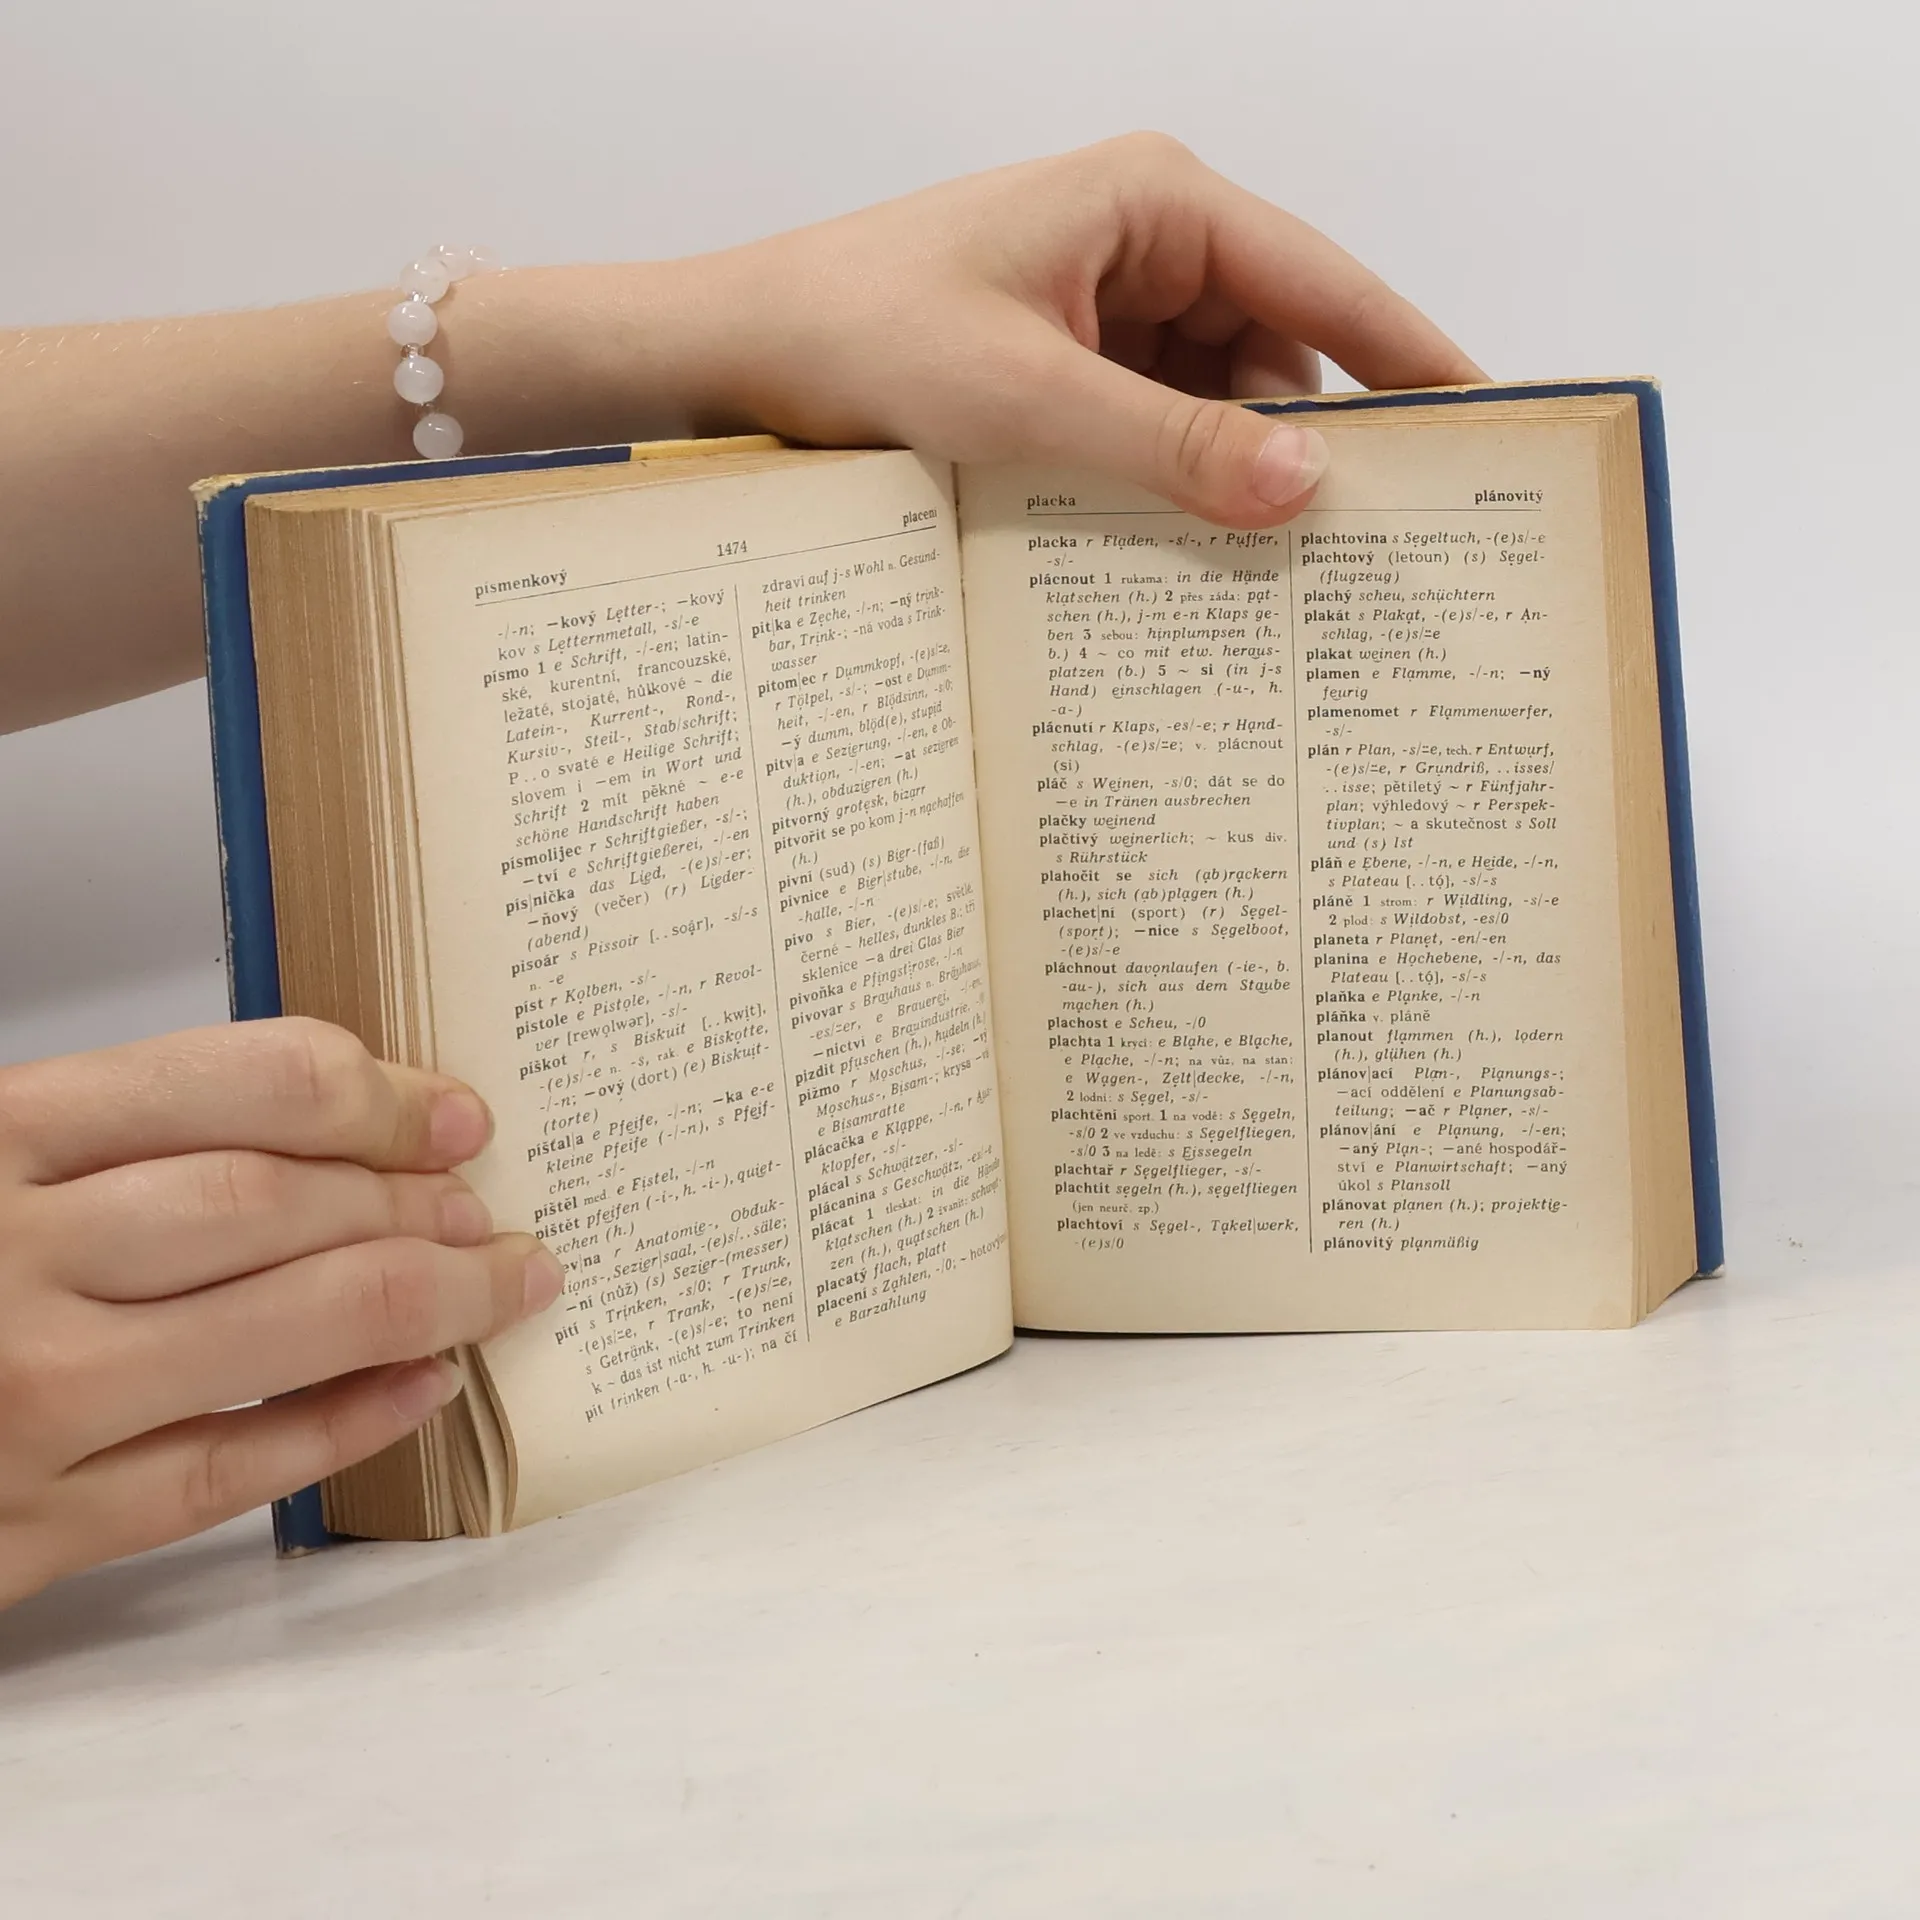 písmenkový
1474
placení
-/-n; —kový Letter-; —kový
kov s Letternmetall, -s/-e
písmo 1 e Schrift, -/-en; latin-
ské, kurentní, francouzské,
ležaté, stojaté, hůlkové ~ die
Latein-, Kurrent-, Rond-,
Kursiv-, Steil-, Stab/schrift;
P..o svaté e Heilige Schrift;
slovem i —em in Wort und
Schrift 2 mít pěkné ~ e-e
schöne Handschrift haben
písmolijec r Schriftgießer, -s/-;
—tví e Schriftgießerei, -/-en
pís|nička das Lied, -(e)s/-er;
—ňový (večer) (r) Lieder-
(abend)
pisoár s Pissoir [..soár], -s/-s
n. -e
píst r Kolben, -s/-
pistole e Pistole, -/-n, r Revol-
ver [rewolwər], -s/-
piškot r, s Biskuit [..kwit],
-(e)s/-e n. -s, rak. e Biskotte,
-/-n; —ový (dort) (e) Biskuit-
(torte)
píšťal|a e Pfeife, -/-n; —ka e-e
kleine Pfeife (-/-n), s Pfeif-
chen, -s/-
píštěl med. e Fistel, -/-n
pištět pfeifen (-i-, h. -i-), quiet-
schen (h.)
ev|na r Anatomie-, Obduk-
tions-, Sezier|saal, -(e)s/..säle;
—ní (nůž) (s) Sezier-(messer)
pití s Trinken, -s/0; r Trunk,
-(e)s/=e, r Trank, -(e)s/=e,
s Getränk, -(e)s/-e; to není
k ~ das ist nicht zum Trinken
pít trinken (-a-, h. -u-); na čí
zdraví auf j-s Wohl n. Gesund-
heit trinken
pit|ka e Zeche, -/-n; —ný trink-
bar, Trink-; -ná voda s Trink-
wasser
pitom|ec r Dummkopf, -(e)s/=e,
r Tölpel, -s/-; —ost e Dumm-
heit, -/-en, r Blödsinn, -s/0;
—ý dumm, blöd(e), stupid
pitv|a e Sezierung, -/-en, e Ob-
duktion, -/-en; —at sezieren
(h.), obduzieren (h.)
pitvorný grotesk, bizarr
pitvořit se po kom j-n nachäffen
(h.)
pivní (sud) (s) Bier-(faß)
pivnice e Bier|stube, -/-n, die
-halle, -/-n
pivo s Bier, -(e)s/-e; světlé,
černé ~ helles, dunkles B.; tři
sklenice —a drei Glas Bier
pivoňka e Pfingstrose, -/-n
pivovar s Brauhaus n. Bräuhaus,
-es/=er, e Brauerei, -/-en,
—nictví e Brauindustrie, -/0
pizdit pfuschen (h.), hudeln (h.)
pižmo r Moschus, -/-se; —vý
Moschus-, Bisam-; krysa —vá
e Bisamratte
plácačka e Klappe, -/-n, r Aus-
klopfer, -s/-
plácal s Schwätzer, -s/-
plácanina s Geschwätz, -es/-e
plácat 1 tleskat: in die Hände
klatschen (h.) 2 žvanit: schwat-
zen (h.), quatschen (h.)
placatý flach, platt
placení s Zahlen, -/0; ~ hotovými
e Barzahlung
placka
plánovitý
placka r Fladen, -s/-, r Puffer,
-s/-
plácnout 1 rukama: in die Hände
klatschen (h.) 2 přes záda: pat-
schen (h.), j-m e-n Klaps ge-
ben 3 sebou: hinplumpsen (h.,
b.) 4 ~ co mit etw. heraus-
platzen (b.) 5 ~ si (in j-s
Hand) einschlagen (-u-, h.
-a-)
plácnutí r Klaps, -es/-e; r Hand-
schlag, -(e)s/=e; v. plácnout
(si)
pláč s Weinen, -s/0; dát se do
—e in Tränen ausbrechen
plačky weinend
plačtivý weinerlich; ~ kus div.
s Rührstück
plahočit se sich (ab)rackern
(h.), sich (ab)plagen (h.)
plachet|ní (sport) (r) Segel-
(sport); —nice s Segelboot,
-(e)s/-e
pláchnout davonlaufen (-ie-, b.
-au-), sich aus dem Staube
machen (h.)
plachost e Scheu, -/0
plachta 1 krycí: e Blahe, e Blache,
e Plache, -/-n; na vůz, na stan:
e Wagen-, Zelt|decke, -/-n,
2 lodní: s Segel, -s/-
plachtění sport. 1 na vodě: s Segeln,
-s/0 2 ve vzduchu: s Segelfliegen,
-s/0 3 na ledě: s Eissegeln
plachtař r Segelflieger, -s/-
plachtit segeln (h.), segelfliegen
(jen neurč. zp.)
plachtoví s Segel-, Takel|werk,
-(e)s/0
plachtovina s Segeltuch, -(e)s/-e
plachtový (letoun) (s) Segel-
(flugzeug)
plachý scheu, schüchtern
plakát s Plakat, -(e)s/-e, r An-
schlag, -(e)s/=e
plakat weinen (h.)
plamen e Flamme, -/-n; —ný
feurig
plamenomet r Flammenwerfer,
-s/-
plán r Plan, -s/=e, tech. r Entwurf,
-(e)s/=e, r Grundriß, ..isses/
..isse; pětiletý ~ r Fünfjahr-
plan; výhledový ~ r Perspek-
tivplan; ~ a skutečnost s Soll
und (s) Ist
pláň e Ebene, -/-n, e Heide, -/-n,
s Plateau [..tó], -s/-s
pláně 1 strom: r Wildling, -s/-e
2 plod: s Wildobst, -es/0
planeta r Planet, -en/-en
planina e Hochebene, -/-n, das
Plateau [..tó], -s/-s
plaňka e Planke, -/-n
pláňka v. pláně
planout flammen (h.), lodern
(h.), glühen (h.)
plánov|ací Plan-, Planungs-;
—ací oddělení e Planungsab-
teilung; —ač r Planer, -s/-
plánov|ání e Planung, -/-en;
—aný Plan-; —ané hospodář-
ství e Planwirtschaft; —aný
úkol s Plansoll
plánovat planen (h.); projektie-
ren (h.)
plánovitý planmäßig